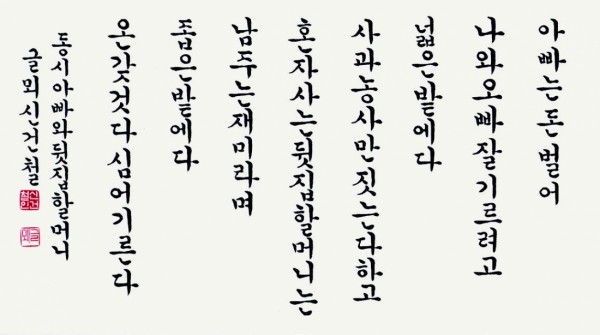 아빠는 돈 벌어
나와 오빠 잘 기르려고
넓은 밭에다
사과 농사만 짓는다 하고
혼자 사는 뒷집 할머니는
남 주는 재미라며
좁은 밭에다
온갖 것 다 심어 기른다
동시 아빠와 뒷집 할머니
글뫼 신건철